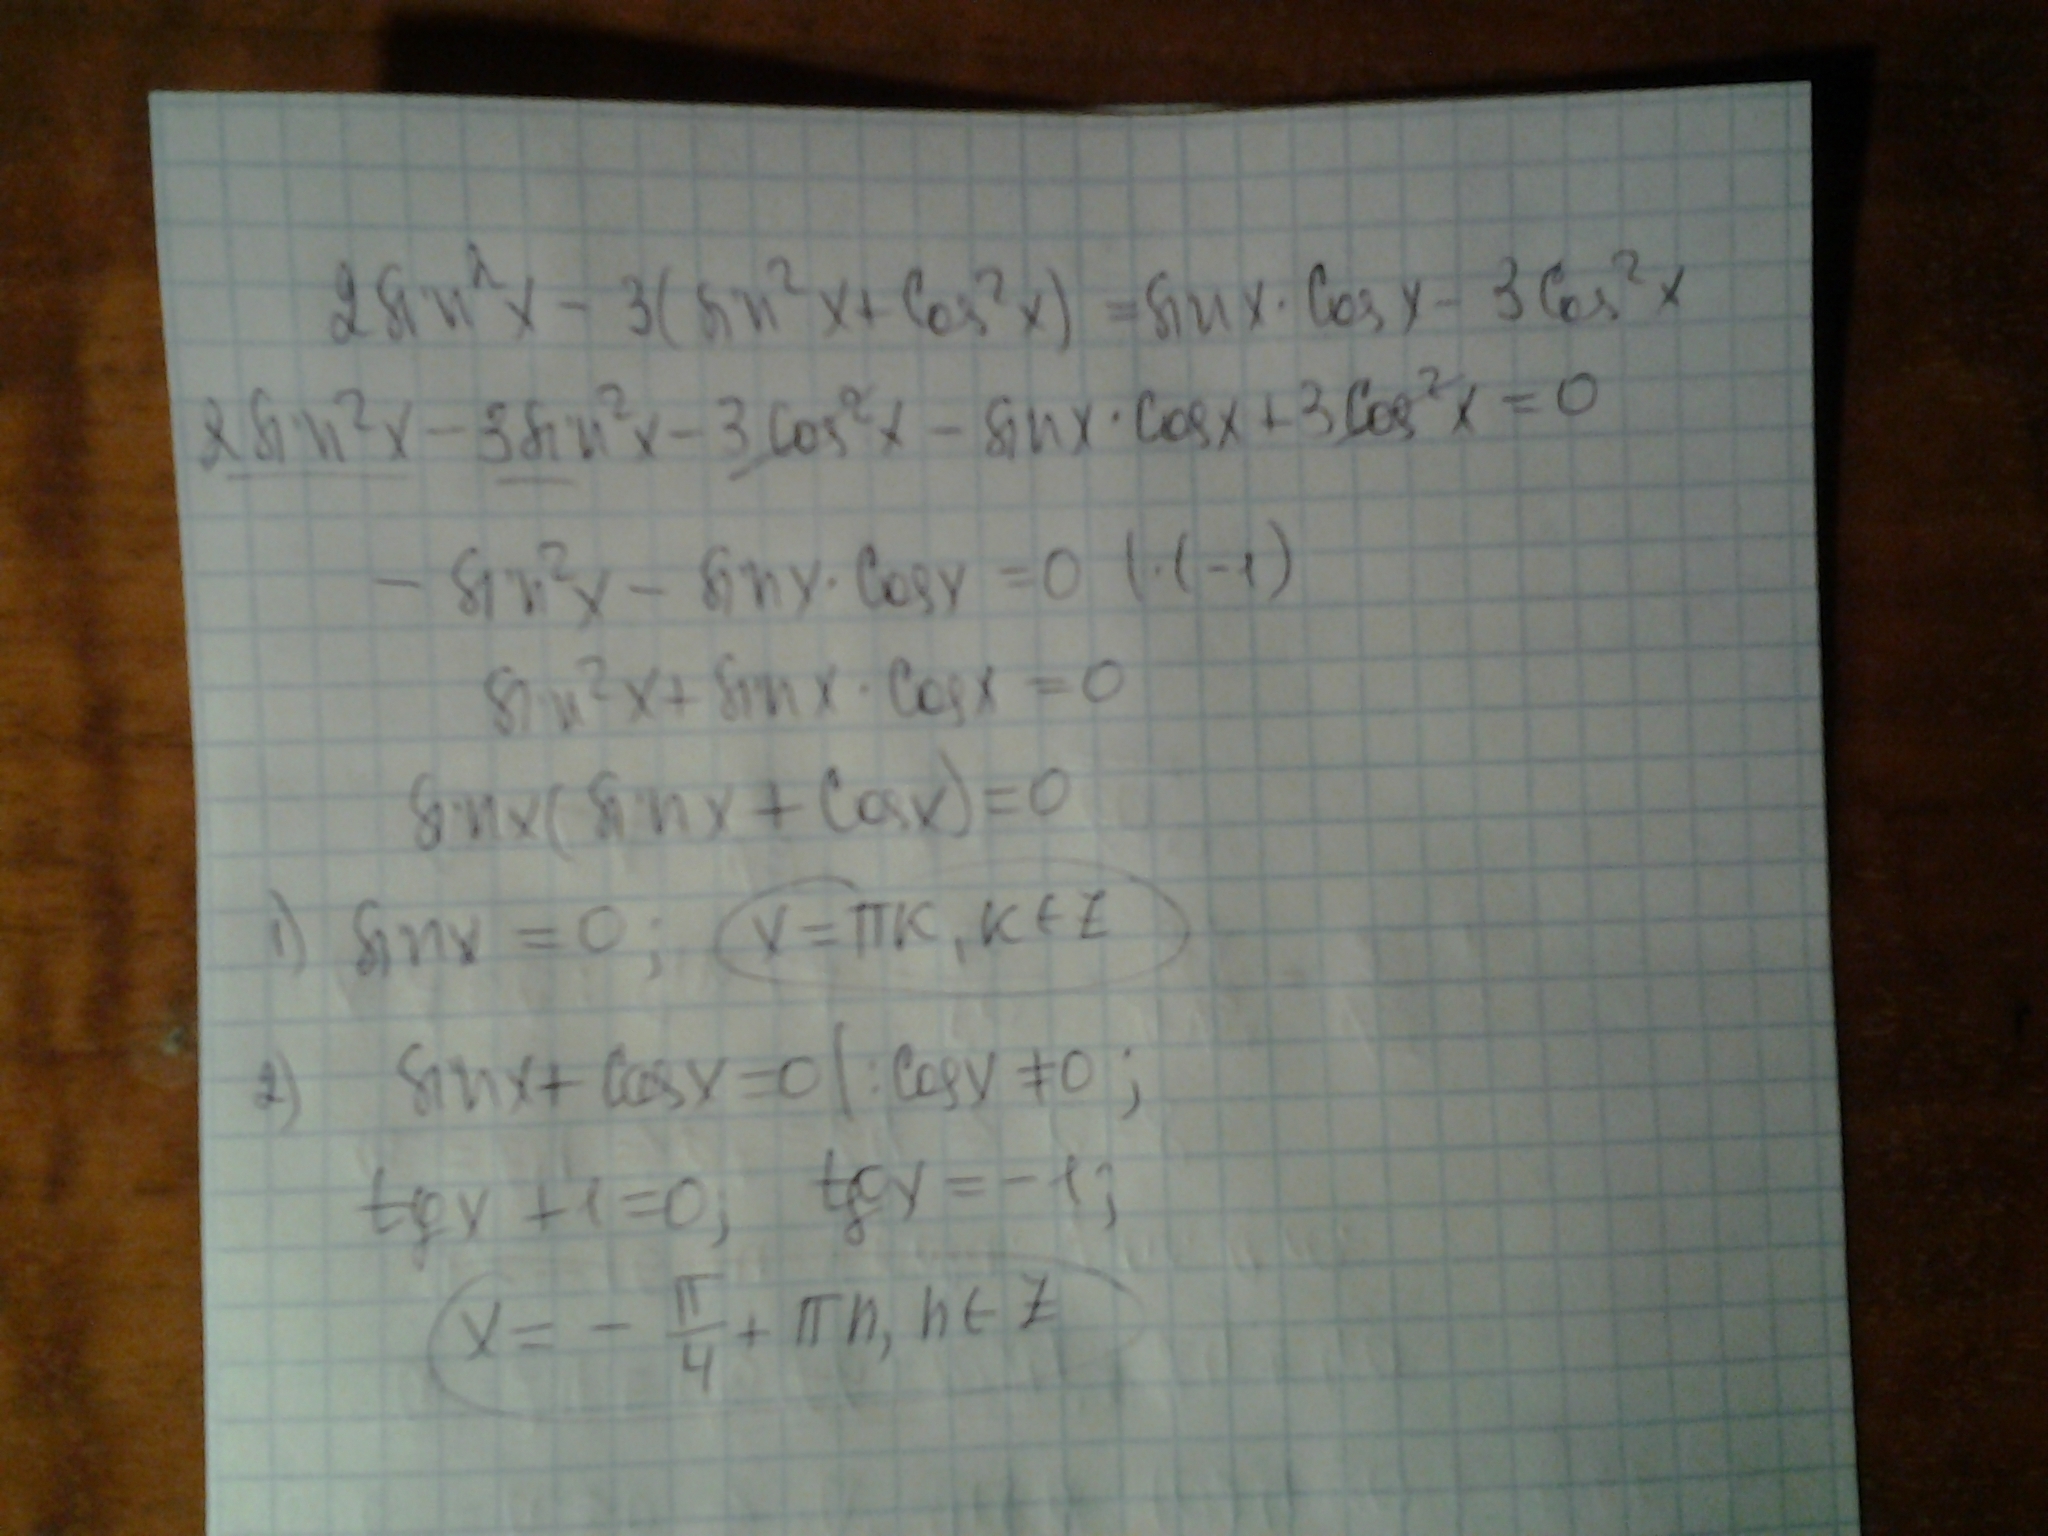 2sin²x - 3(sin²x + cos²x) = sinx · cosx - 3cos²x
2sin²x - 3sin²x - 3cos²x - sinx · cosx + 3cos²x = 0
- sin²x - sinx · cosx = 0 | · (-1)
sin²x + sinx · cosx = 0
sinx(sinx + cosx) = 0
1) sinx = 0; x = πk, k ∈ Z
2) sinx + cosx = 0 | : cosx ≠ 0;
tgx + 1 = 0; tgx = -1;
x = - π/4 + πn, n ∈ Z